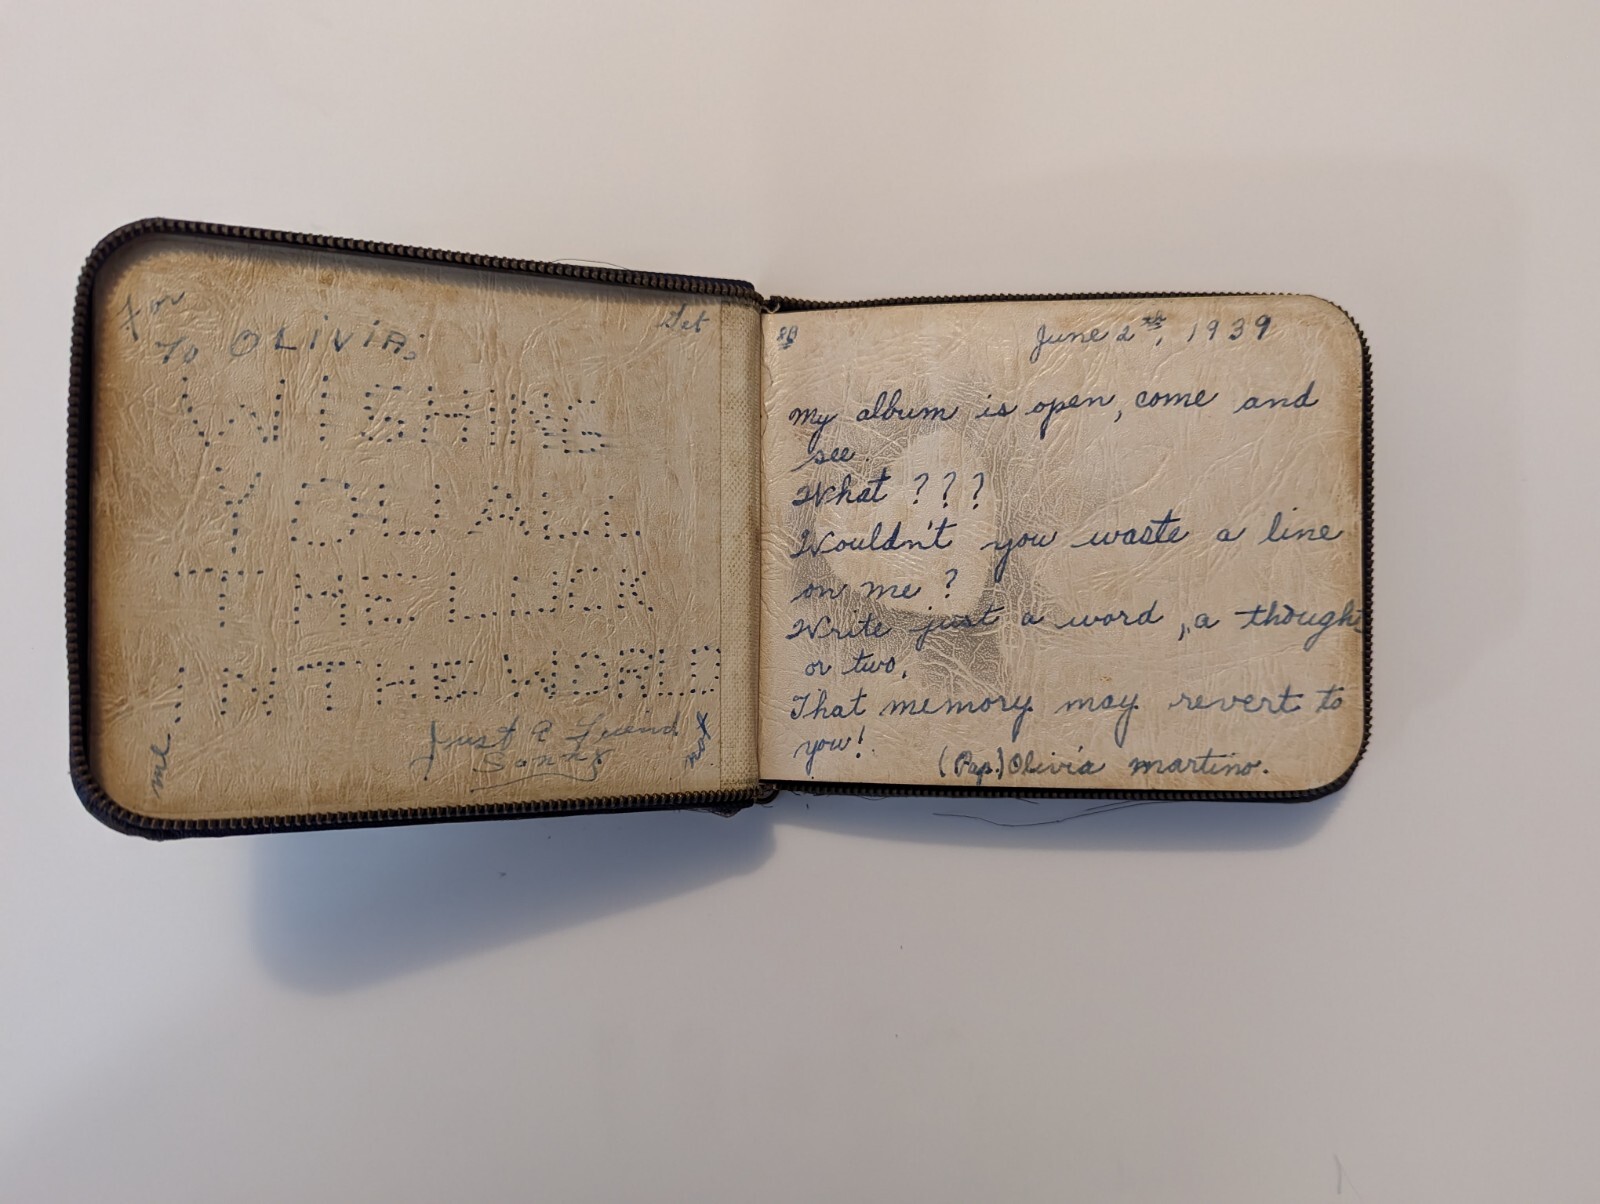 For
Get
me
not
To OLIVIA;
WISHING
YOU ALL
THE LUCK
IN THE WORLD
Just A Friend
June 2th, 1939
My album is open, come and
see.
What ???
Wouldn't you waste a line
on me?
Write just a word, a though
or two,
That memory may revert to
you!
(Pap.) Olivia Martino.